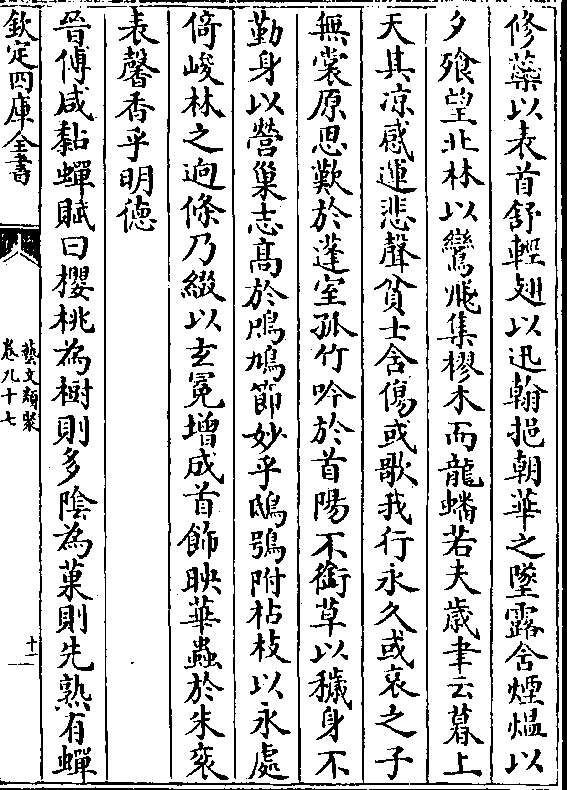 修蘂以表首舒輕翅以迅翰挹朝華之墜露含煙熅以
夕飱望北林以鸞飛集樛木而龍蟠若夫歲聿云暮上
天其凉感運悲聲貧士含傷或歌我行永久或哀之子
無裳原思歎於蓬室孤竹吟於首陽不銜草以穢身不
勤身以營巢志髙於鳲鳩節妙乎鴟鴞附枯枝以永處
倚峻林之迥條乃綴以玄冕增成首飾映華蟲於朱衮
表馨香乎明徳
晉傅咸黏蟬賦曰櫻桃為樹則多陰為菓則先熟有蟬
欽定四庫全書
藝文類聚
卷九十七
十一